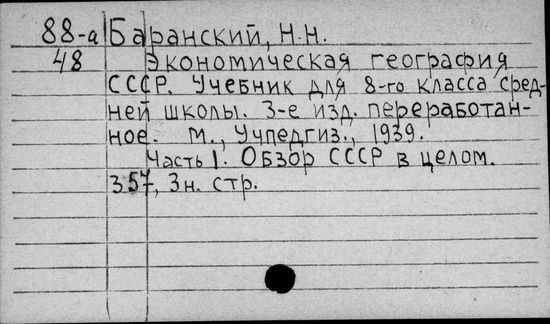 88-а Баранский, Н.Н.
48 Экономическая география
СССР. Учебник для 8-го класса сред-
ней школы. 3-е изд. переработан-
ное. М., Учпедгиз., 1939.
Часть 1. Обзор СССР в целом.
357, 3н. стр.